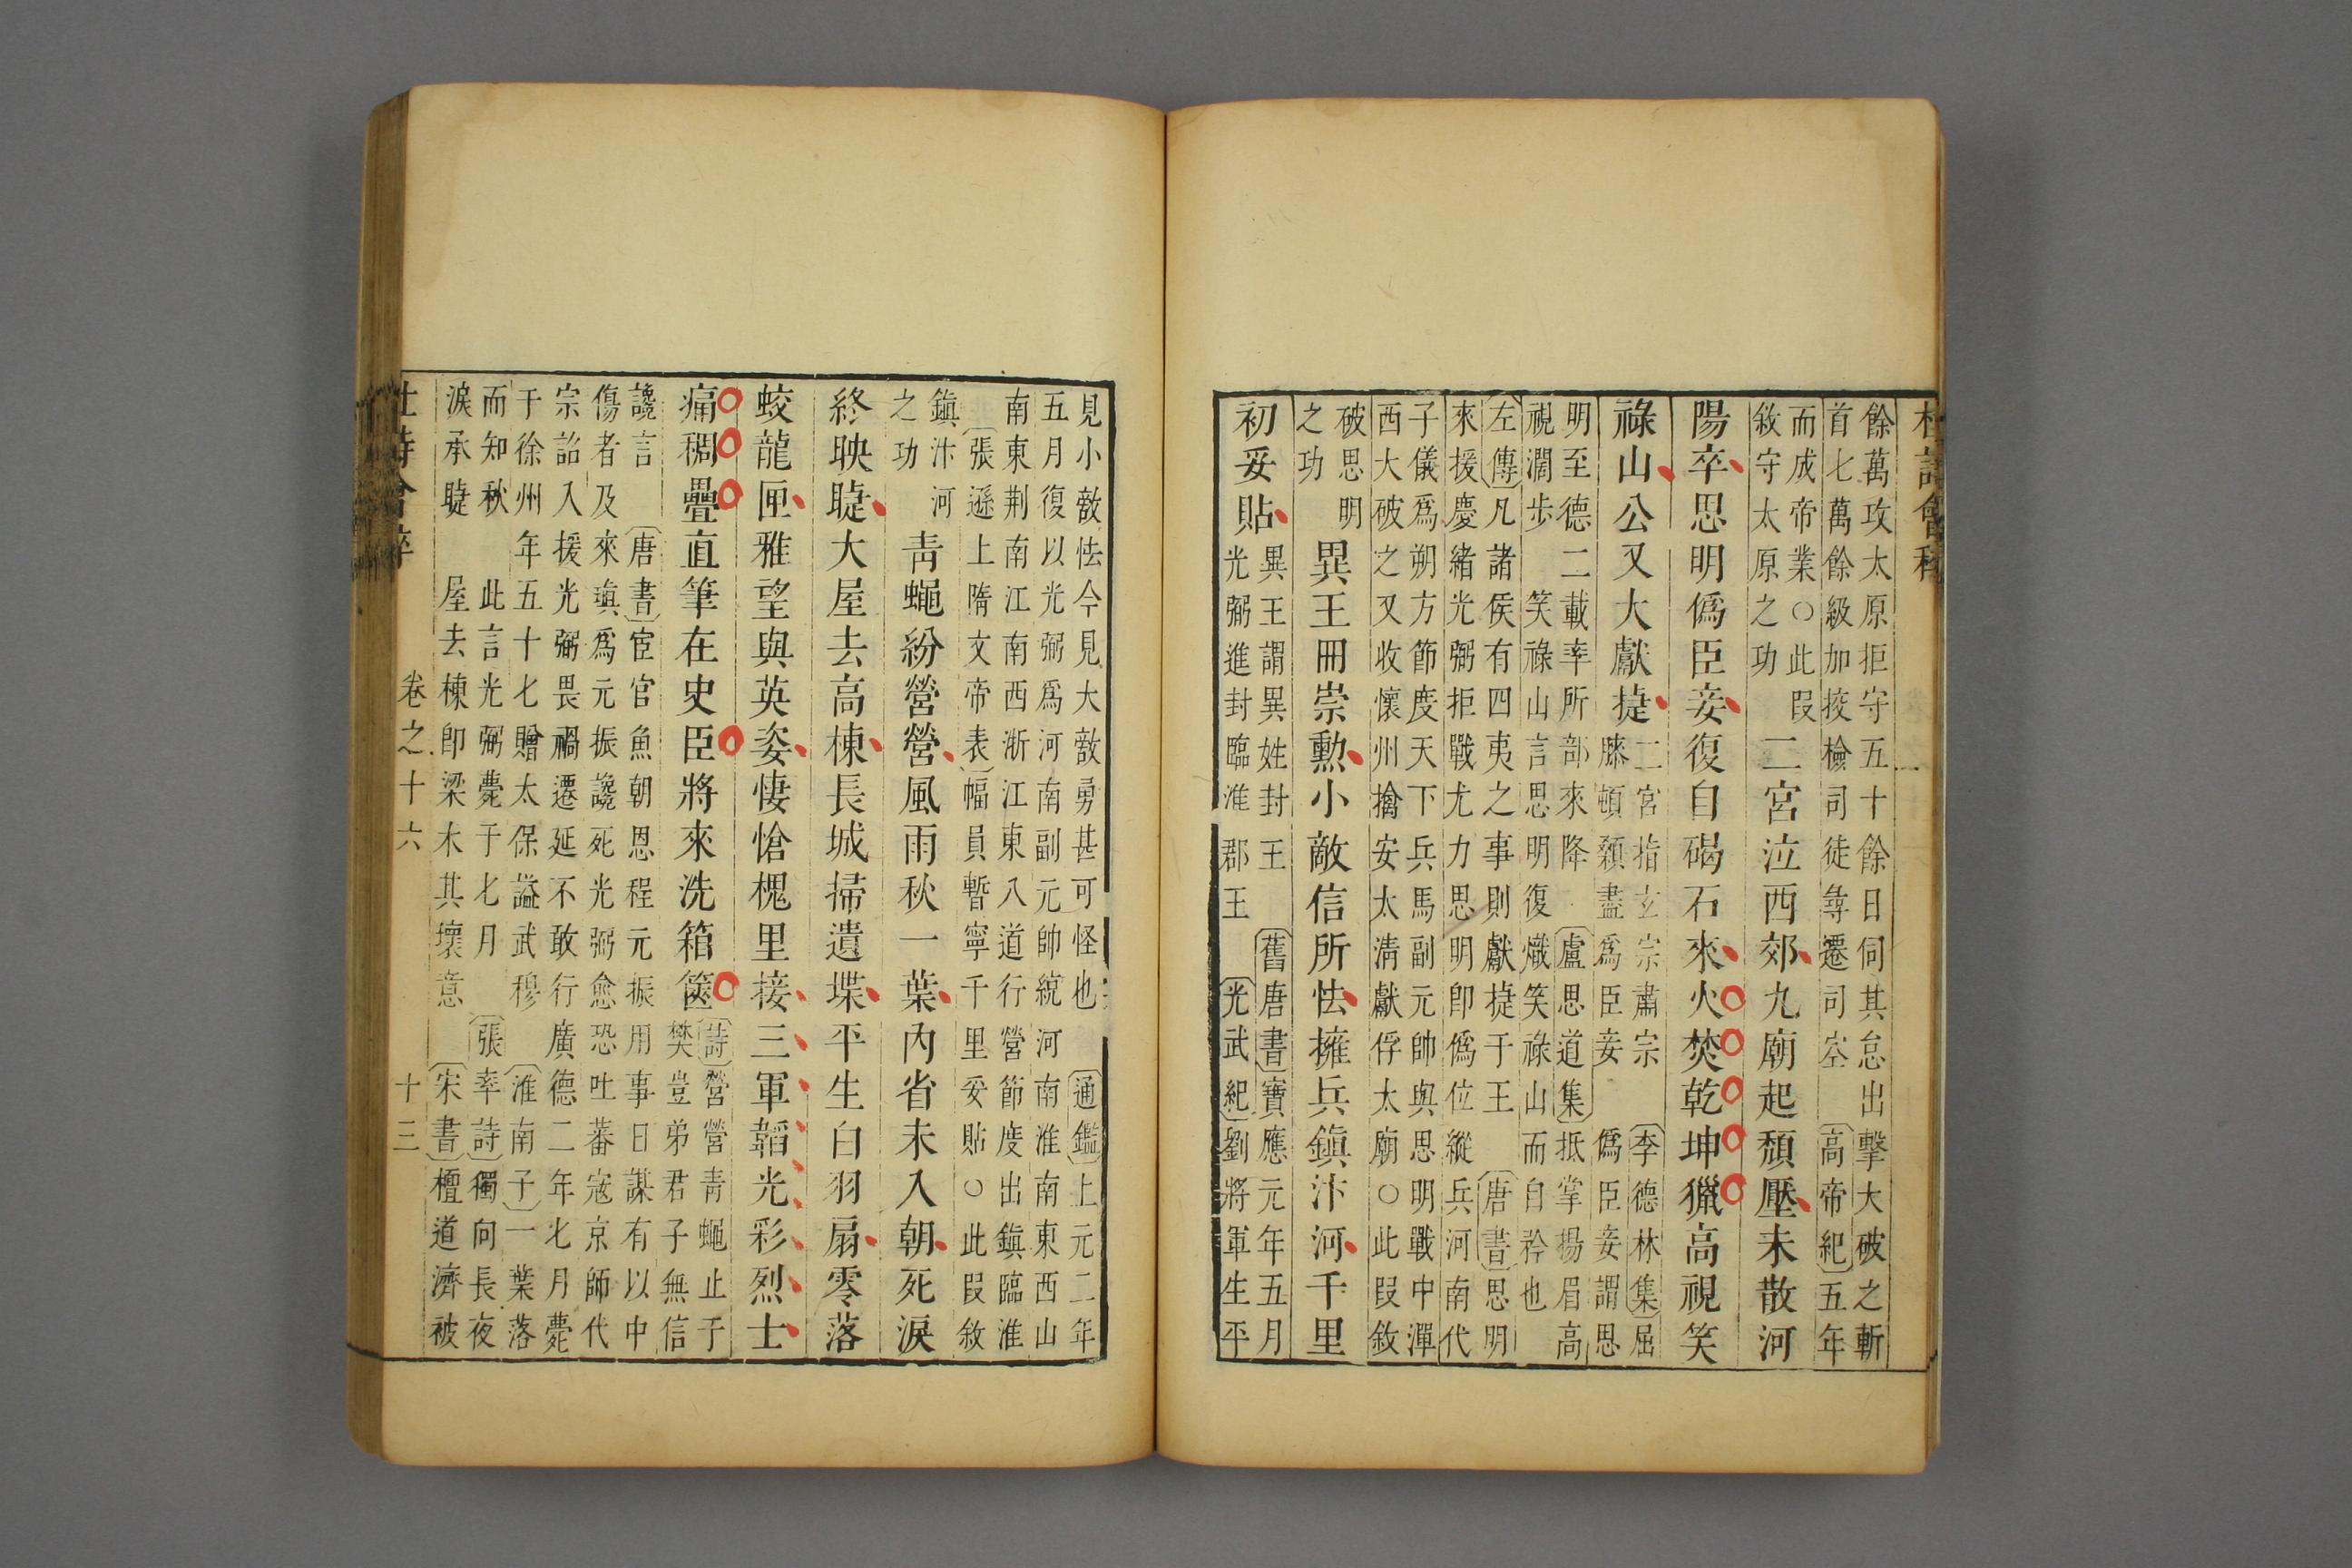 杜詩會粹
餘萬攻太原拒守五十餘日伺其怠出擊大破之斬
首七萬餘級加撿檢司徒尋遷司空 高帝紀五年
而成帝業○此叚
敘守太原之功
二宮泣西郊九廟起頹壓未散河
陽卒思明僞臣妾復自碣石來火焚乾坤獵高視笑
祿山公又大獻捷
二宮指玄宗肅宗 李德林集屈
膝頓顙盡爲臣妾 僞臣妾謂思
明至德二載率所部來降 盧思道集抵掌揚眉高
視濶步 笑祿山言思明復熾笑祿山而自矜也
左傳凡諸侯有四夷之事則獻捷于王 唐書思明
來援慶緒光弼拒戰尤力思明即僞位縱兵河南代
子儀爲朔方節度天下兵馬副元帥與思明戰中潬
西大破之又收懷州擒安太清獻俘太廟○此叚敘
破思明
之功
異王冊崇勳小敵信所怯擁兵鎮汴河千里
初妥貼
異王謂異姓封王 舊唐書寶應元年五月
光弼進封臨淮郡王 光武紀劉將軍生平
見小敵怯今見大敵勇甚可怪也 通鑑上元二年
五月復以光弼爲河南副元帥統河南淮南東西山
南東荆南江南西浙江東八道行營節度出鎮臨淮
張遜上隋文帝表幅員暫寧千里妥貼○此叚敘
鎮汴河
之功
青蠅紛營營風雨秋一葉內省未入朝死淚
終映睫大屋去高棟長城掃遺堞平生白羽扇零落
蛟龍匣雅望與英姿悽愴槐里接三軍韜光彩烈士
痛稠疊直筆在史臣將來洗箱篋
詩營營青蠅止于
樊豈弟君子無信
讒言 唐書宦官魚朝恩程元振用事日謀有以中
傷者及來瑱爲元振讒死光弼愈恐吐蕃寇京師代
宗詔入援光弼畏禍遷延不敢行廣德二年七月薨
于徐州年五十七贈太保謚武穆 淮南子一葉落
而知秋 此言光弼薨于七月 張率詩獨向長夜
淚承睫 屋去棟即梁木其壞意 宋書檀道濟被
杜詩會粹 卷之十六 十三